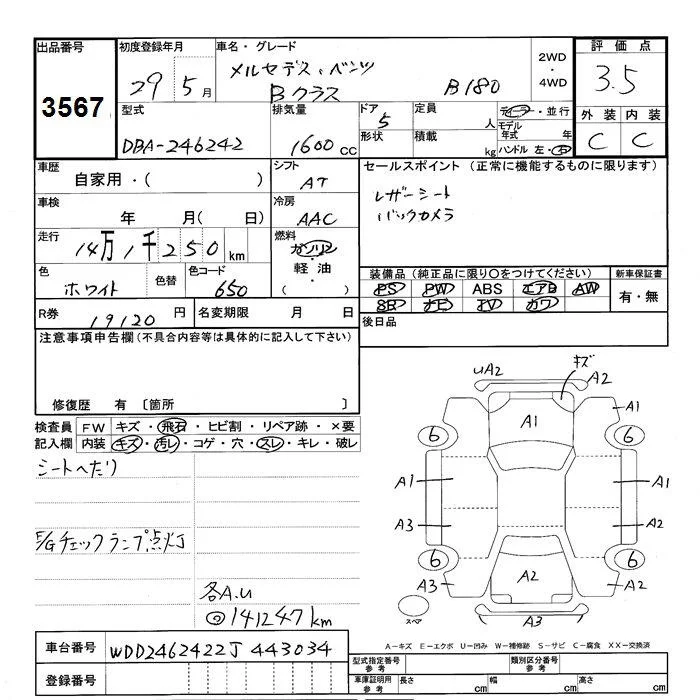 出品番号
3567
初度登録年月
29 5月
車名・グレード
メルセデス・ベンツ
Bクラス B180
2WD
・
4WD
評価点
3.5
外装 内装
C C
型式
DBA-246242
排気量
1600cc
ドア
5
形状
定員
人
積載
kg
ディーラー・並行
モデル
年式 年
ハンドル 左・右
車歴
自家用・( )
シフト
AT
セールスポイント (正常に機能するものに限ります)
レザーシート
バックカメラ
車検
年 月( 日)
冷房
AAC
走行
14万1千250km
燃料
ガソリン
・
軽油
( )
色
ホワイト
色替
色コード
650
装備品(純正品に限り○をつけてください)
PS PW ABS エアB AW
SR ナビ TV カワ
新車保証書
有・無
R券
19120円
名変期限 月 日
後日品
注意事項申告欄(不具合内容等は具体的に記入して下さい)
修復歴 有〔箇所 〕
検査員 FW キズ・飛石・ヒビ割・リペア跡・×要
記入欄 内装 キズ・汚レ・コゲ・穴・スレ・キレ・破レ
シートへたり
E/Gチェックランプ点灯
各A.U
◎141247km
UA2
キズ
A2
A1
A1
6
6
A1
A1
A3
A2
6
6
A3
A2
A2
スペア
A3
A-キズ E-エクボ U-凹み W-補修跡 S-サビ C-腐食 XX-交換済
車台番号
WDD2462422J443034
登録番号
型式指定番号
参考
類別区分番号
参考
車庫証明用
参考
長さ cm
幅 cm
高さ cm